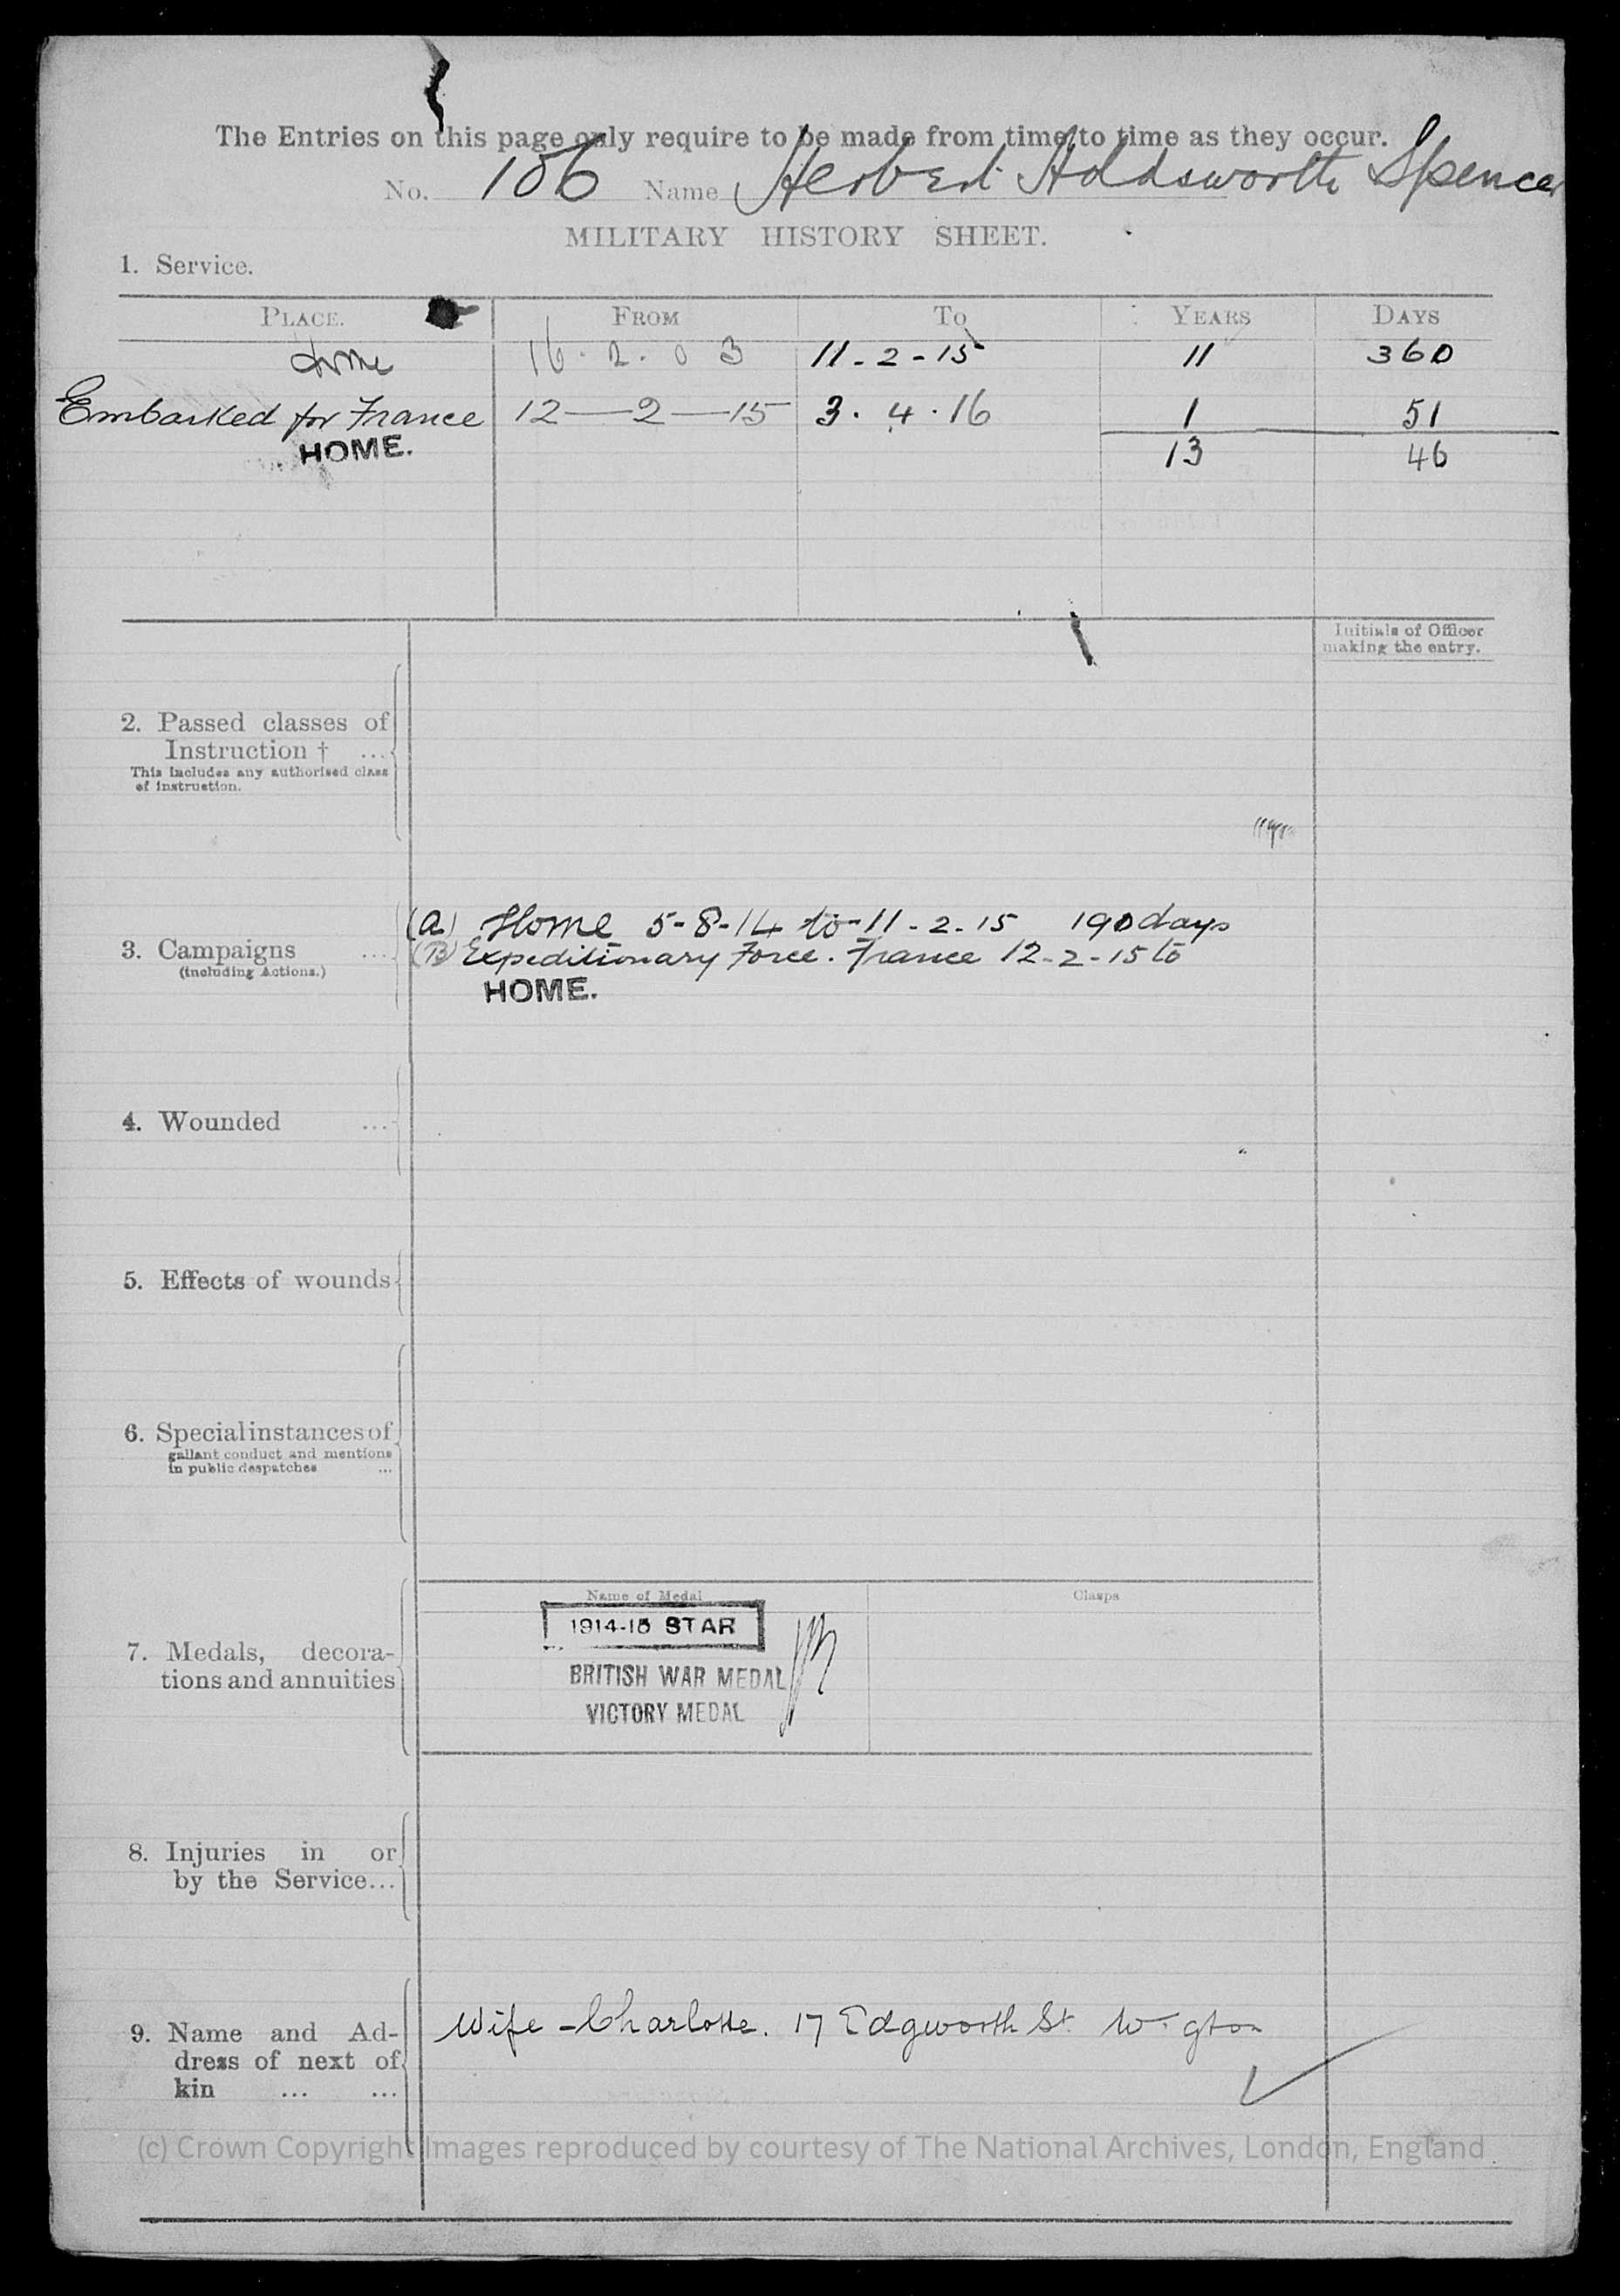 The Entries on this page only require to be made from time to time as they occur.
No. 106 Name Herbert Holdsworth Spencer
MILITARY HISTORY SHEET.
1. Service.
PLACE. FROM To YEARS DAYS
Home 16.2.03 11-2-15 11 360
Embarked for France 12—2—15 3.4.16 1 51
HOME. 13 46
Initials of Officer
making the entry.
2. Passed classes of
Instruction † ...
This includes any authorised class
of instruction.
(a) Home 5-8-14 to 11-2-15 190 days
3. Campaigns ... (B) Expeditionary Force. France 12-2-15 to
(including Actions.)
HOME.
4. Wounded ...
5. Effects of wounds
6. Special instances of
gallant conduct and mentions
in public despatches ...
Name of Medal Clasps
1914-15 STAR
7. Medals, decora-
tions and annuities
BRITISH WAR MEDAL
VICTORY MEDAL
8. Injuries in or
by the Service...
9. Name and Ad- Wife - Charlotte. 17 Edgworth St.
dress of next of
kin ... ...
(c) Crown Copyright Images reproduced by courtesy of The National Archives, London, England